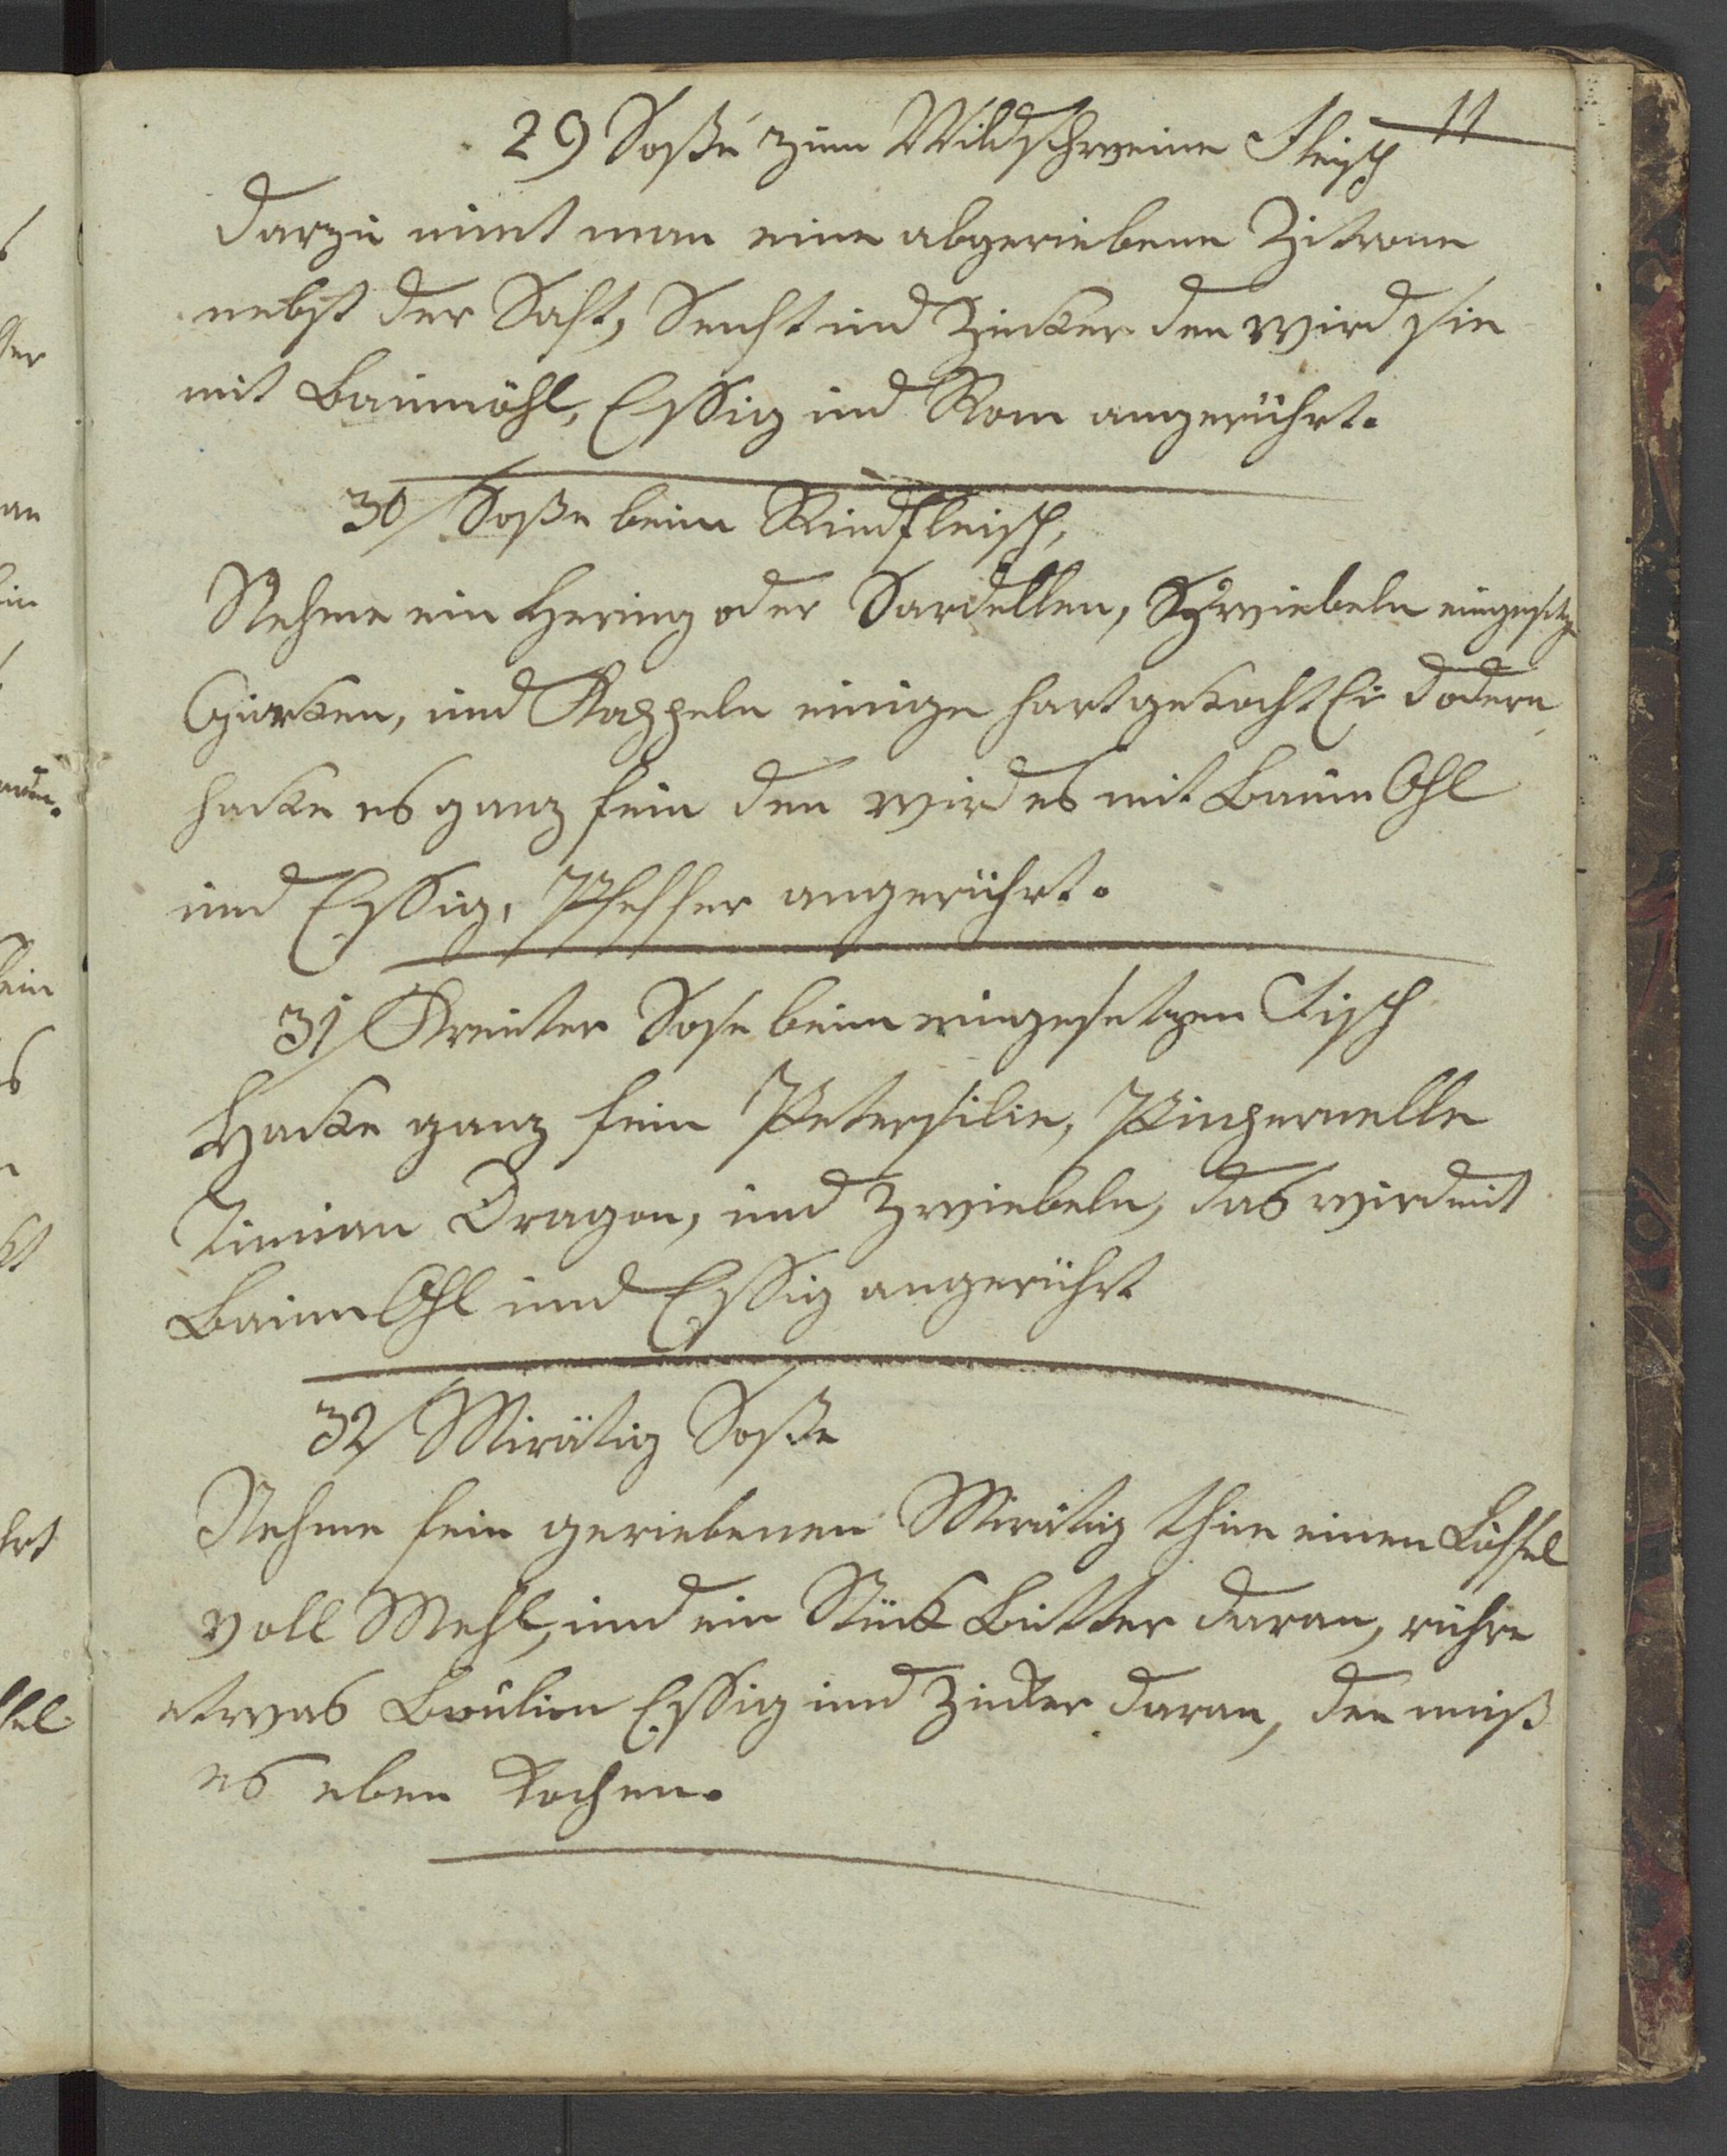 11
29 Soße zum Wildschweine Fleisch
darzu nimt man eine abgeriebene Zitrone
nebst der Saft, Senft und Zucker den wird sie
mit Baumöhl, Essig und Rom angerührt.
30/ Soße beim Rindfleisch,
Nehme ein Hering oder Sardellen, Zwiebeln eingesetze
Gurken, und Kappeln einige hartgekocht Ei dodern
hacke es ganz fein den wird es mit Baum Ohl
und Essig, Pfeffer angerührt.
31/ Kreuter Sose beim eingesetzen Fisch
Hacke ganz fein Petersilie, Pinpernelle
Timian Dragon, und Zwiebeln, das wird mit
Baum Ohl und Essig angerührt
32/ Mirätig Soße
Nehme fein geriebenen Mirätig thue einen Löffel
voll Mehl, und ein Stück Butter daran, rühre
etwas Boulion Essig und Zucker daran, den muß
es eben Kochen.